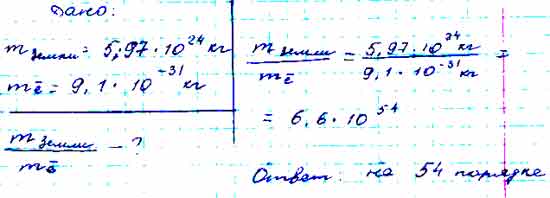 Дано:
m земли = 5,97 · 10²⁴ кг
m ē = 9,1 · 10⁻³¹ кг
m земли / m ē - ?
m земли / m ē = 5,97 · 10²⁴ кг / 9,1 · 10⁻³¹ кг =
= 6,6 · 10⁵⁴
Ответ: на 54 порядке